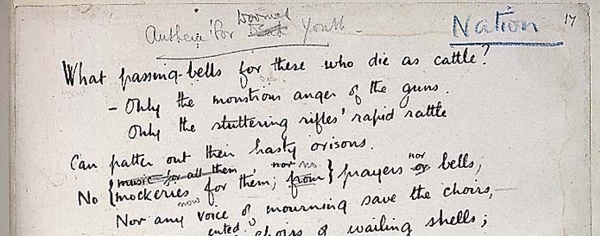 Anthem for Dead Doomed Youth
Nation
17
What passing-bells for these who die as cattle?
- Only the monstrous anger of the guns.
Only the stuttering rifles' rapid rattle
Can patter out their hasty orisons.
music for all them nor no nor
No {mockeries for them; from} prayers or bells,
now
Nor any voice of mourning save the choirs,
choirs of wailing shells;